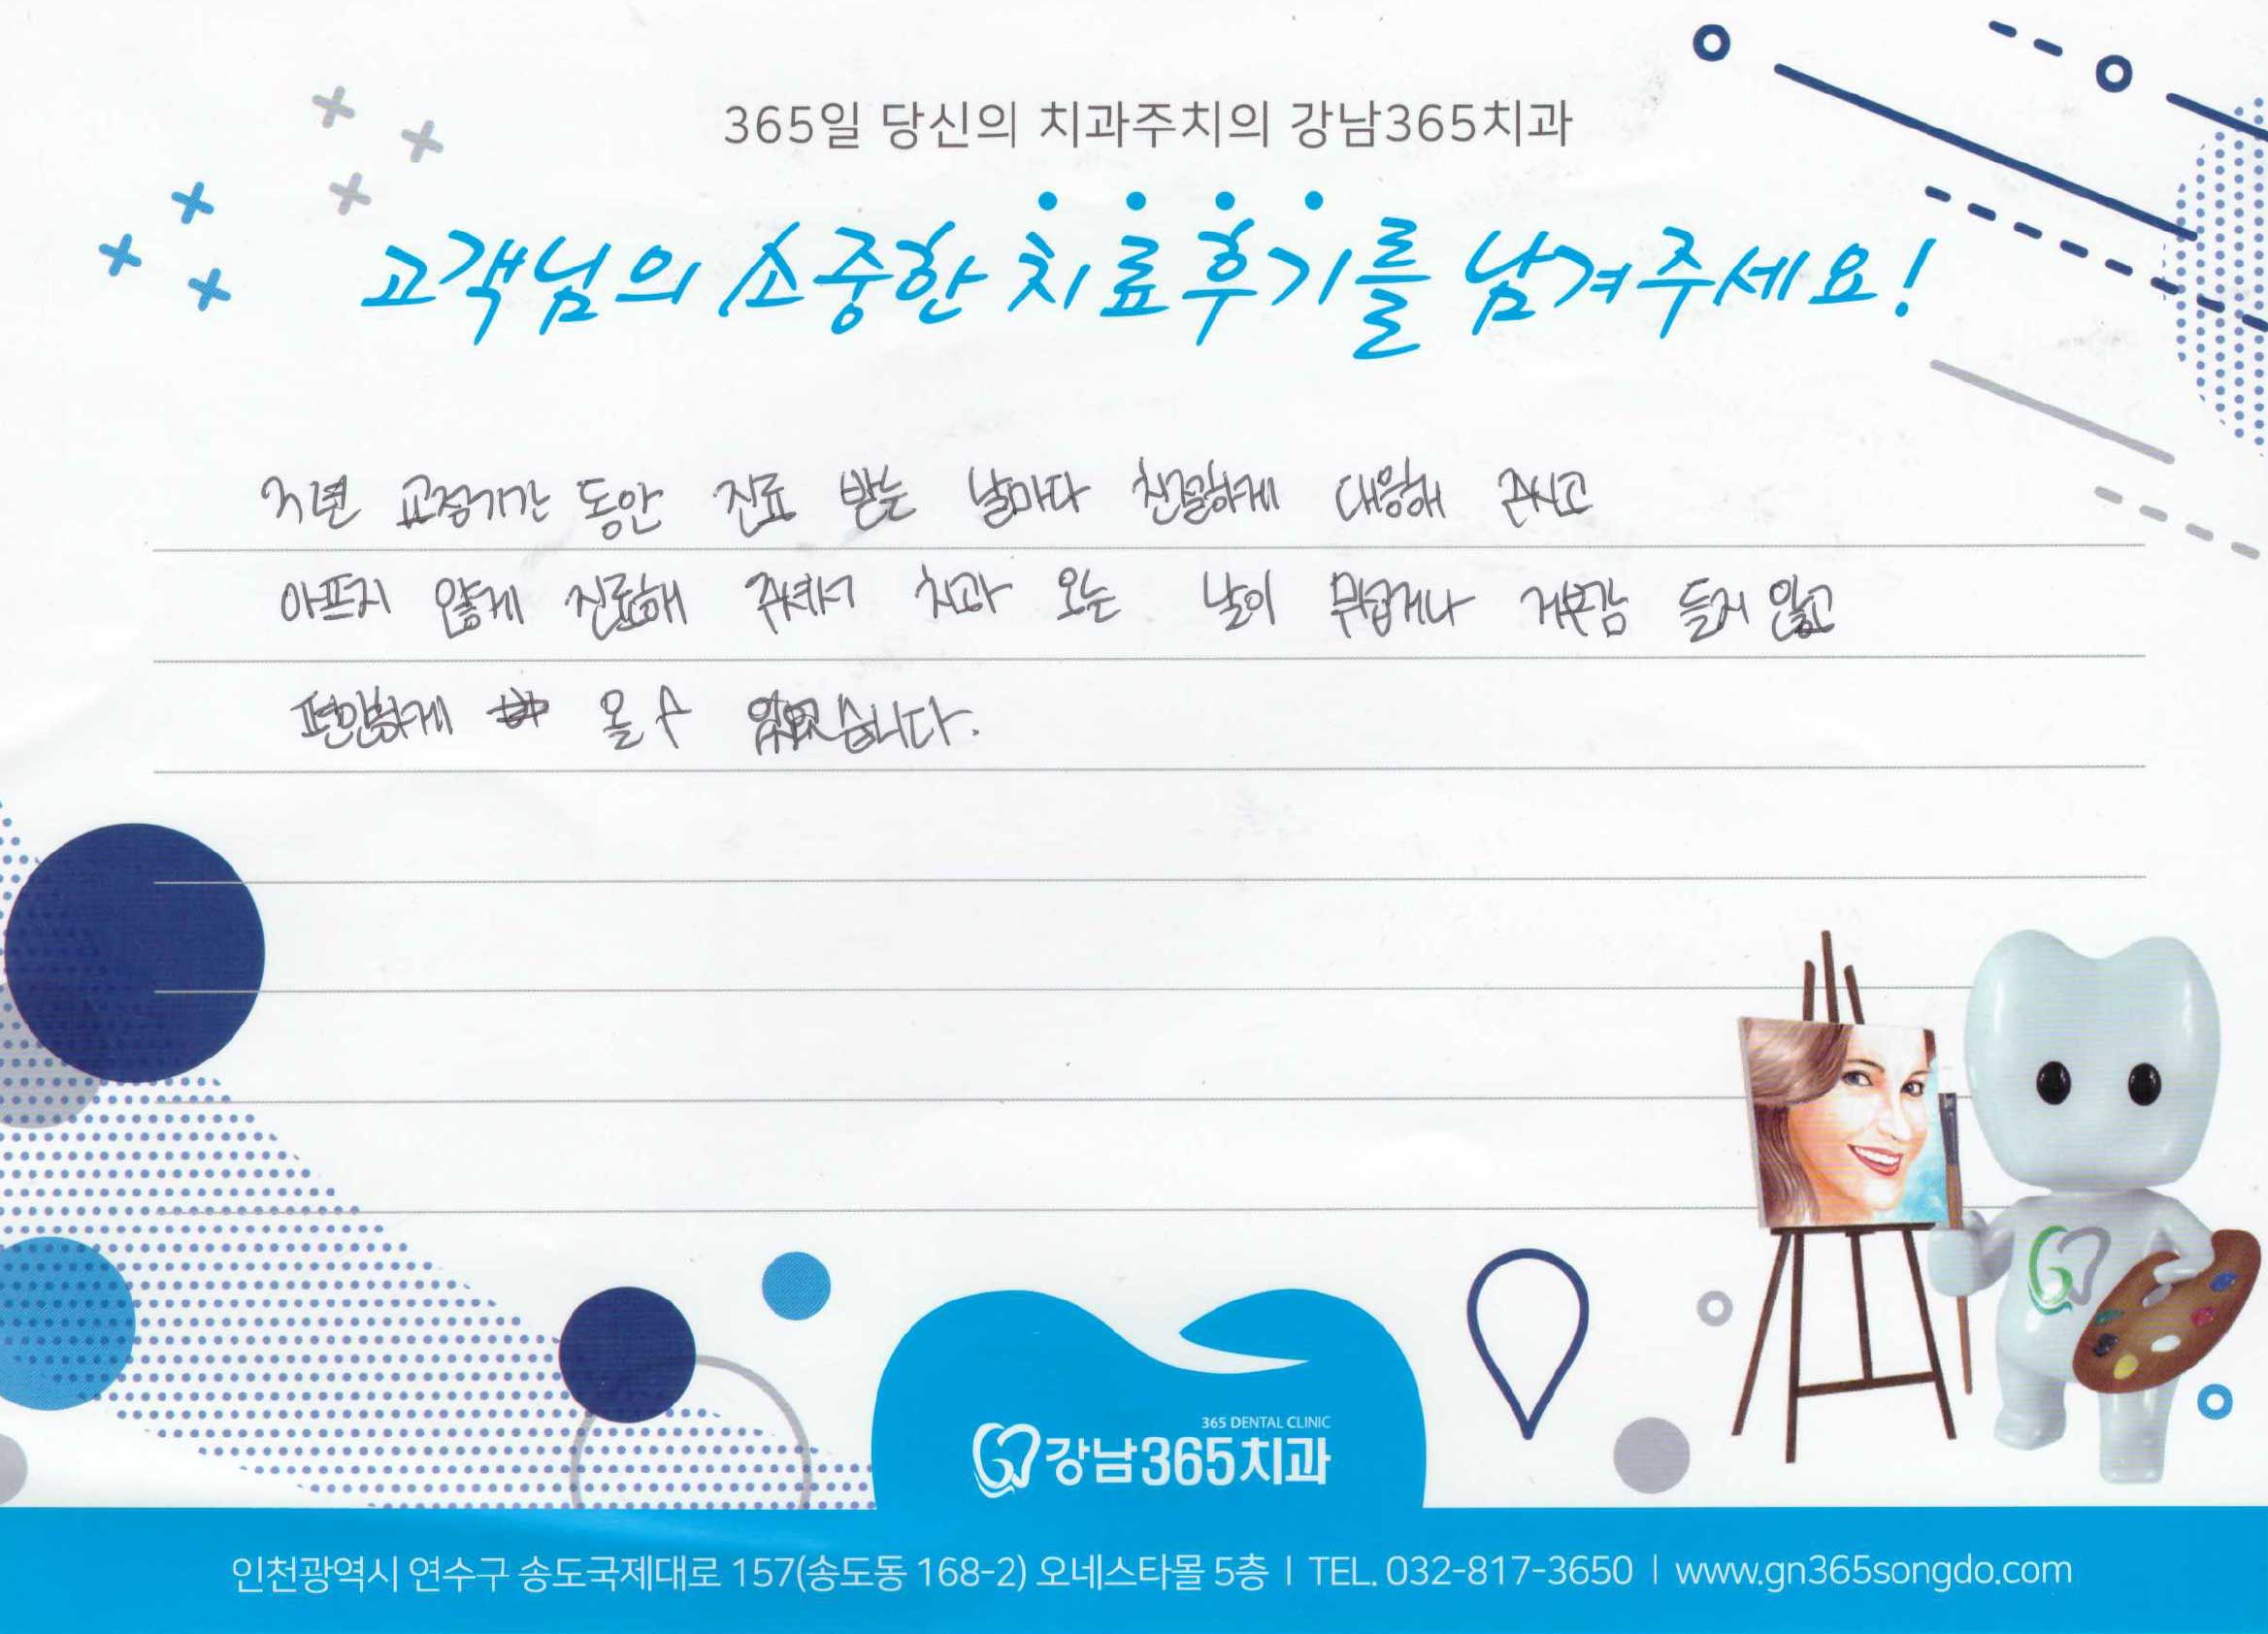 365일 당신의 치과주치의 강남365치과
고객님의 소중한 치료후기를 남겨주세요!
년 교정기간 동안 진료 받는 날마다 친절하게 대응해 주시고
아프지 않게 진료해 주셔서 치과 오는 날이 무겁거나 거부감 들지 않고
편안하게 올 수 있었습니다.
365 DENTAL CLINIC
강남365치과
인천광역시 연수구 송도국제대로 157(송도동 168-2) 오네스타몰 5층 | TEL. 032-817-3650 | www.gn365songdo.com